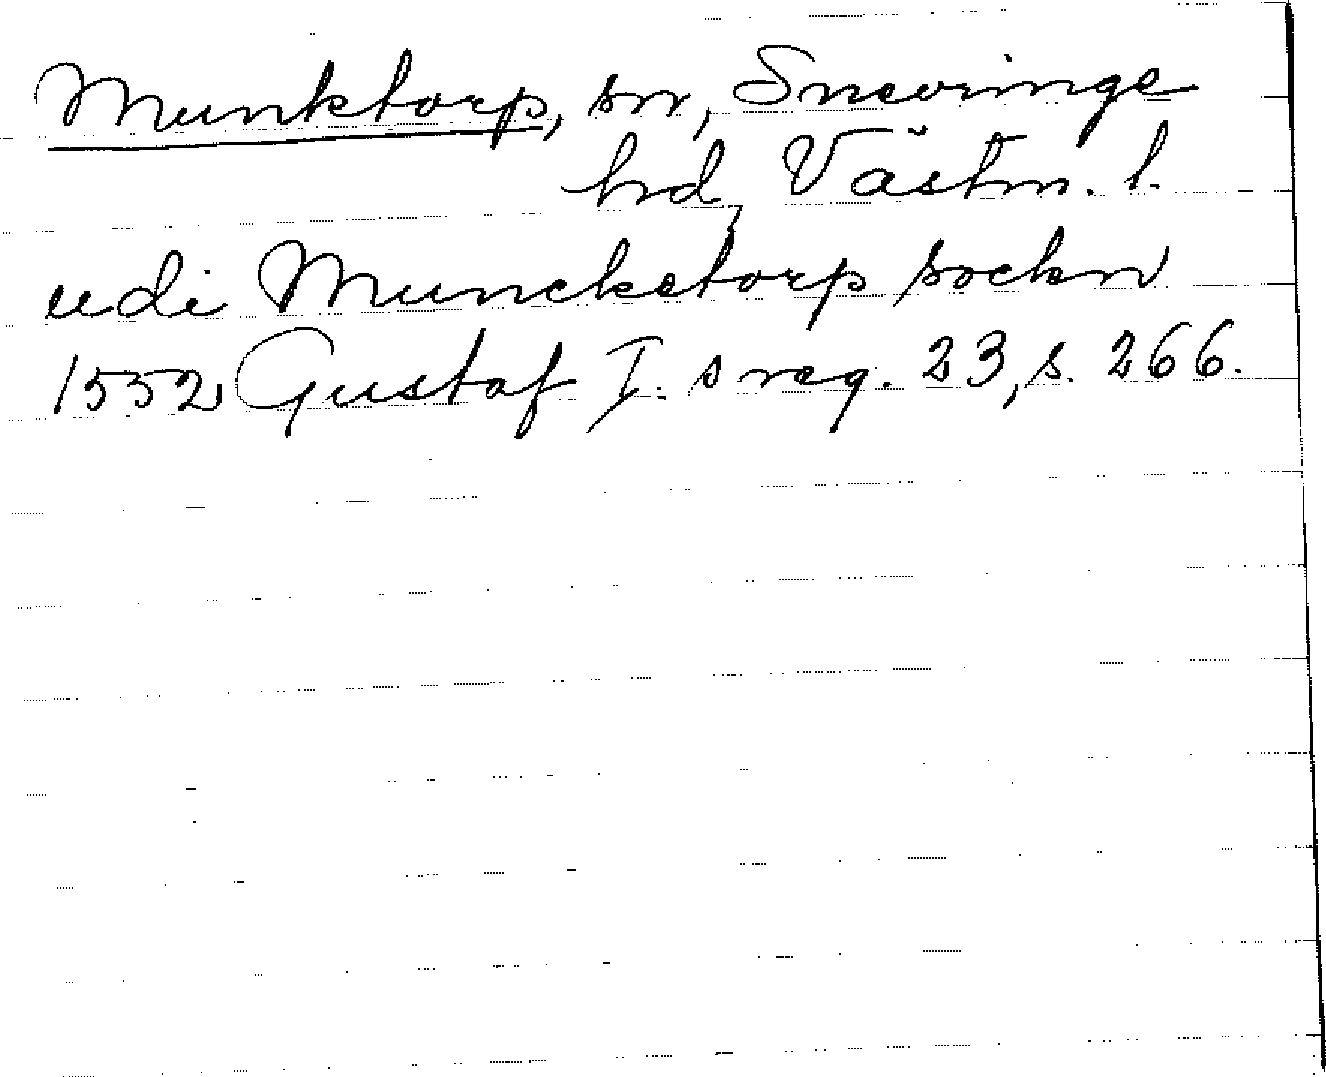 Munktorp, sn, Snevringe
hd, Västm. l.
udi Munckatorp sockn
1552 Gustaf I. s reg. 23, s. 266.